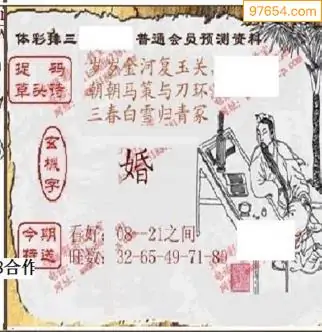 97654.com
体彩排三 普通会员预测资料
捉码
草头诗
岁岁金河复玉关,
朝朝马策与刀环
三春白雪归青冢
玄機字
婚
今期
看好:08--21之间
旺数:32-65-49-71-80
8合作